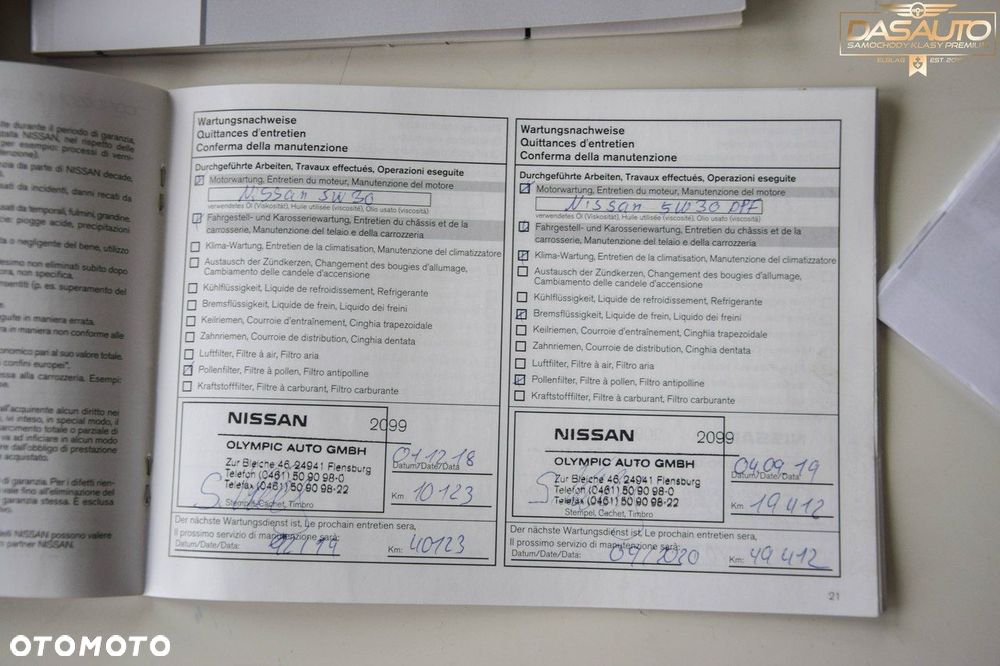 DASAUTO
SAMOCHODY KLASY PREMIUM
ELBLĄG
durante il periodo di garanzia,
NISSAN, nel rispetto delle
per esempio: processi di verni-
da parte di NISSAN decade,
da incidenti, danni recati da
da temporali, fulmini, grandine,
piogge acide, precipitazioni
o negligente del bene, utilizzo
non eliminati subito dopo
ora, non specifica.
(p. es. superamento del
in maniera errata.
in maniera non conforme alle
pari al suo valore totale.
confini europei".
alla carrozzeria. Esempi:
alcun diritto nei
in special modo, il
totale o parziale di
va ad inficiare in alcun modo
dall'obbligo di prestazione
acquistato.
di garanzia. Per i difetti rien-
vale fino all'eliminazione del
garanzia stessa. È esclusa
NISSAN possono valere
partner NISSAN.
Wartungsnachweise
Quittances d'entretien
Conferma della manutenzione
Durchgeführte Arbeiten, Travaux effectués, Operazioni eseguite
Motorwartung, Entretien du moteur, Manutenzione del motore
Nissan 5W30
verwendetes Öl (Viskosität), Huile utilisée (viscosité), Olio usato (viscosità)
Fahrgestell- und Karosseriewartung, Entretien du châssis et de la
carrosserie, Manutenzione del telaio e della carrozzeria
Klima-Wartung, Entretien de la climatisation, Manutenzione del climatizzatore
Austausch der Zündkerzen, Changement des bougies d'allumage,
Cambiamento delle candele d'accensione
Kühlflüssigkeit, Liquide de refroidissement, Refrigerante
Bremsflüssigkeit, Liquide de frein, Liquido dei freini
Keilriemen, Courroie d'entraînement, Cinghia trapezoidale
Zahnriemen, Courroie de distribution, Cinghia dentata
Luftfilter, Filtre à air, Filtro aria
Pollenfilter, Filtre à pollen, Filtro antipolline
Kraftstofffilter, Filtre à carburant, Filtro carburante
NISSAN 2099
OLYMPIC AUTO GMBH
Zur Bleiche 46, 24941 Flensburg
Telefon (0461) 50 90 98-0
Telefax (0461) 50 90 98-22
Stempel, Cachet, Timbro
01.12.18
Datum/Date/Data
Km 10123
Der nächste Wartungsdienst ist, Le prochain entretien sera,
Il prossimo servizio di manutenzione sarà:
Datum/Date/Data: 12/19 Km: 40123
Wartungsnachweise
Quittances d'entretien
Conferma della manutenzione
Durchgeführte Arbeiten, Travaux effectués, Operazioni eseguite
Motorwartung, Entretien du moteur, Manutenzione del motore
Nissan 5W30 DPF
verwendetes Öl (Viskosität), Huile utilisée (viscosité), Olio usato (viscosità)
Fahrgestell- und Karosseriewartung, Entretien du châssis et de la
carrosserie, Manutenzione del telaio e della carrozzeria
Klima-Wartung, Entretien de la climatisation, Manutenzione del climatizzatore
Austausch der Zündkerzen, Changement des bougies d'allumage,
Cambiamento delle candele d'accensione
Kühlflüssigkeit, Liquide de refroidissement, Refrigerante
Bremsflüssigkeit, Liquide de frein, Liquido dei freini
Keilriemen, Courroie d'entraînement, Cinghia trapezoidale
Zahnriemen, Courroie de distribution, Cinghia dentata
Luftfilter, Filtre à air, Filtro aria
Pollenfilter, Filtre à pollen, Filtro antipolline
Kraftstofffilter, Filtre à carburant, Filtro carburante
NISSAN 2099
OLYMPIC AUTO GMBH
Zur Bleiche 46, 24941 Flensburg
Telefon (0461) 50 90 98-0
Telefax (0461) 50 90 98-22
Stempel, Cachet, Timbro
04.09.19
Datum/Date/Data
Km 19412
Der nächste Wartungsdienst ist, Le prochain entretien sera,
Il prossimo servizio di manutenzione sarà:
Datum/Date/Data: 09/2020 Km: 49412
21
OTOMOTO